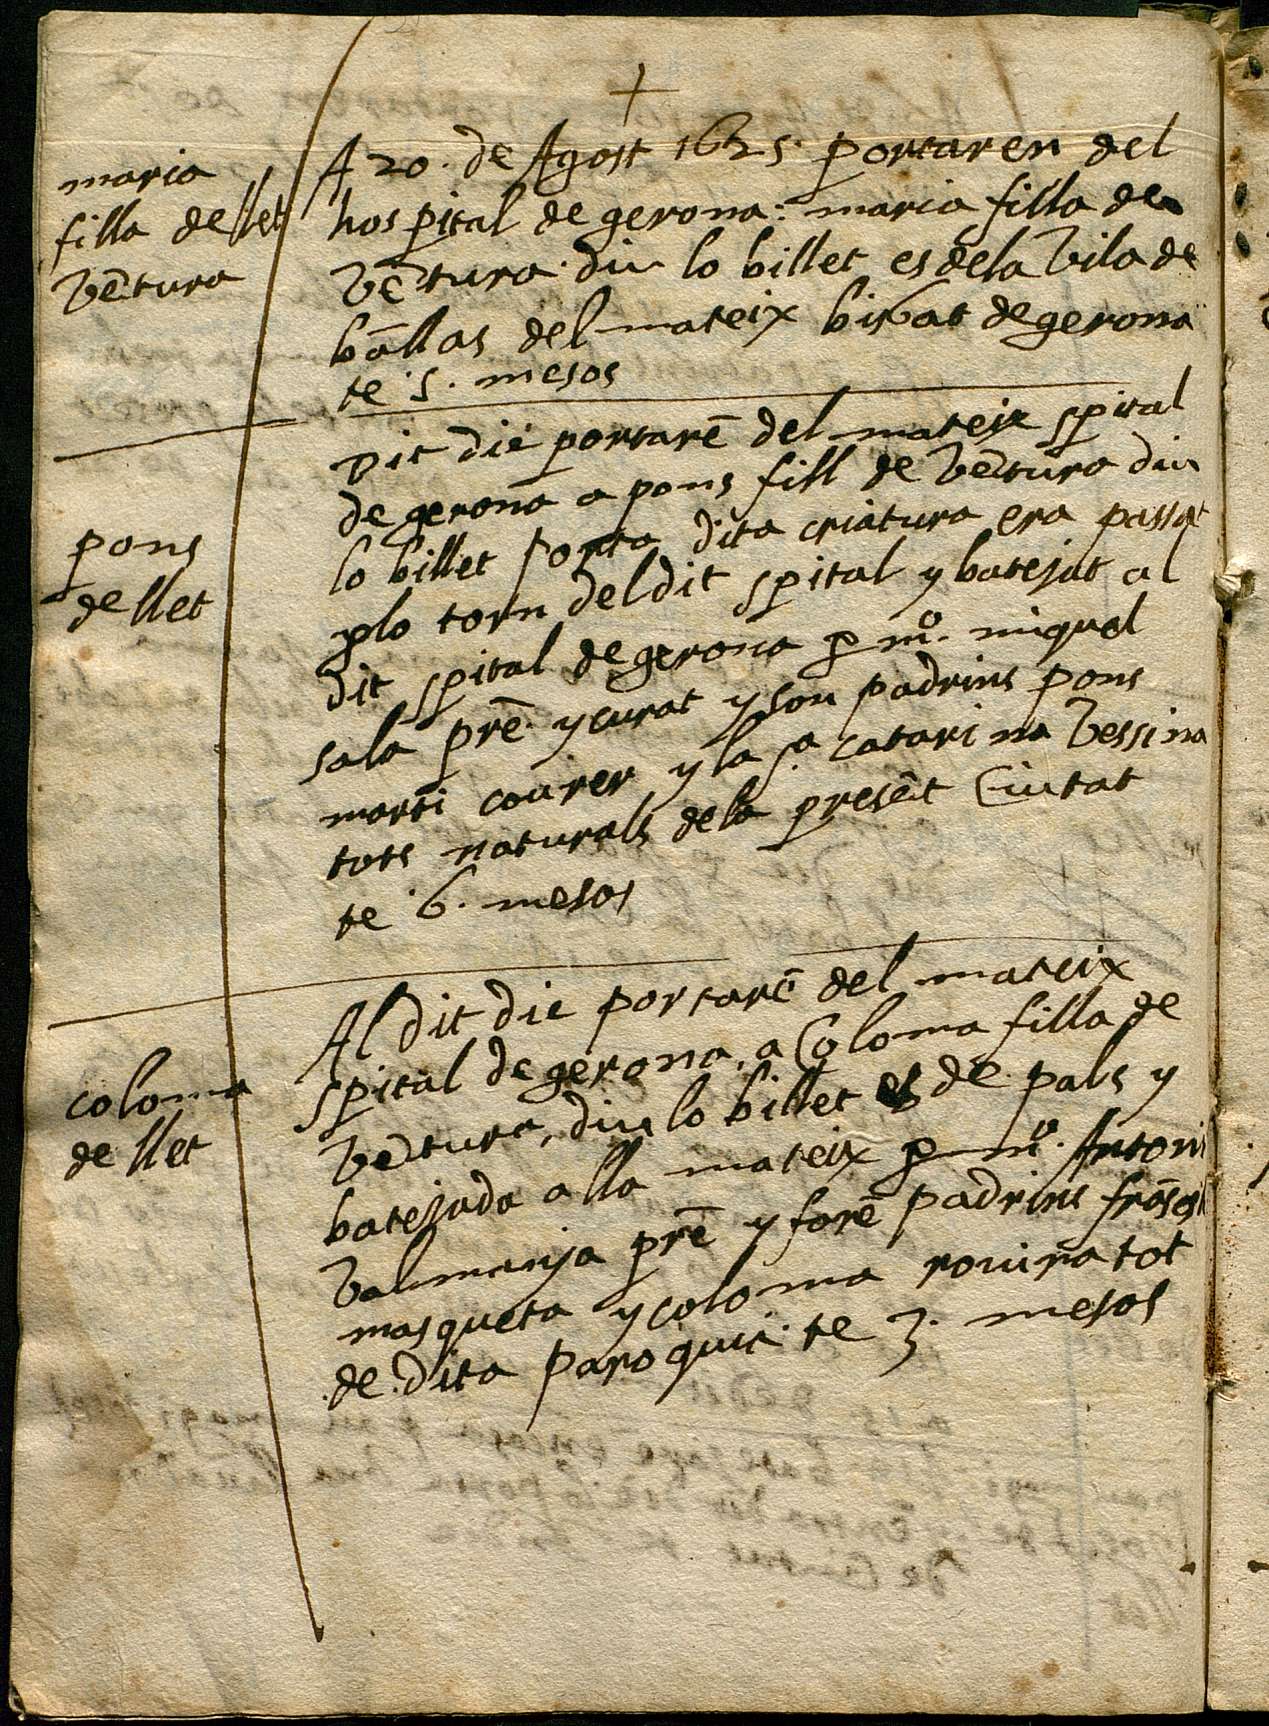 +
maria
filla de llet
vētura
A 20. de Agost 1625. portaren del
hospital de gerona: maria filla de
vētura. diu lo billet es de la vila de
bāllas del mateix bisbat de gerona
te 5. mesos
pons
de llet
Dit die portarē del mateix spital
de gerona a pons fill de vētura diu
lo billet porta dita criatura era passat
plo torn del dit spital y batejat al
dit spital de gerona p mº. miquel
sala prē. y curat y son padrins pons
marti courer y la sª. catarina vessina
tots naturals de la presēt Ciutat
te 6. mesos
coloma
de llet
Al dit die portarē del mateix
spital de gerona, a Coloma filla de
vētura, diu lo billet es de pals y
batejada alla mateix p mº. Antoni
valmanya prē y forē padrins
masqueta y coloma rouira tot
de dita paroquie. te 3. mesos